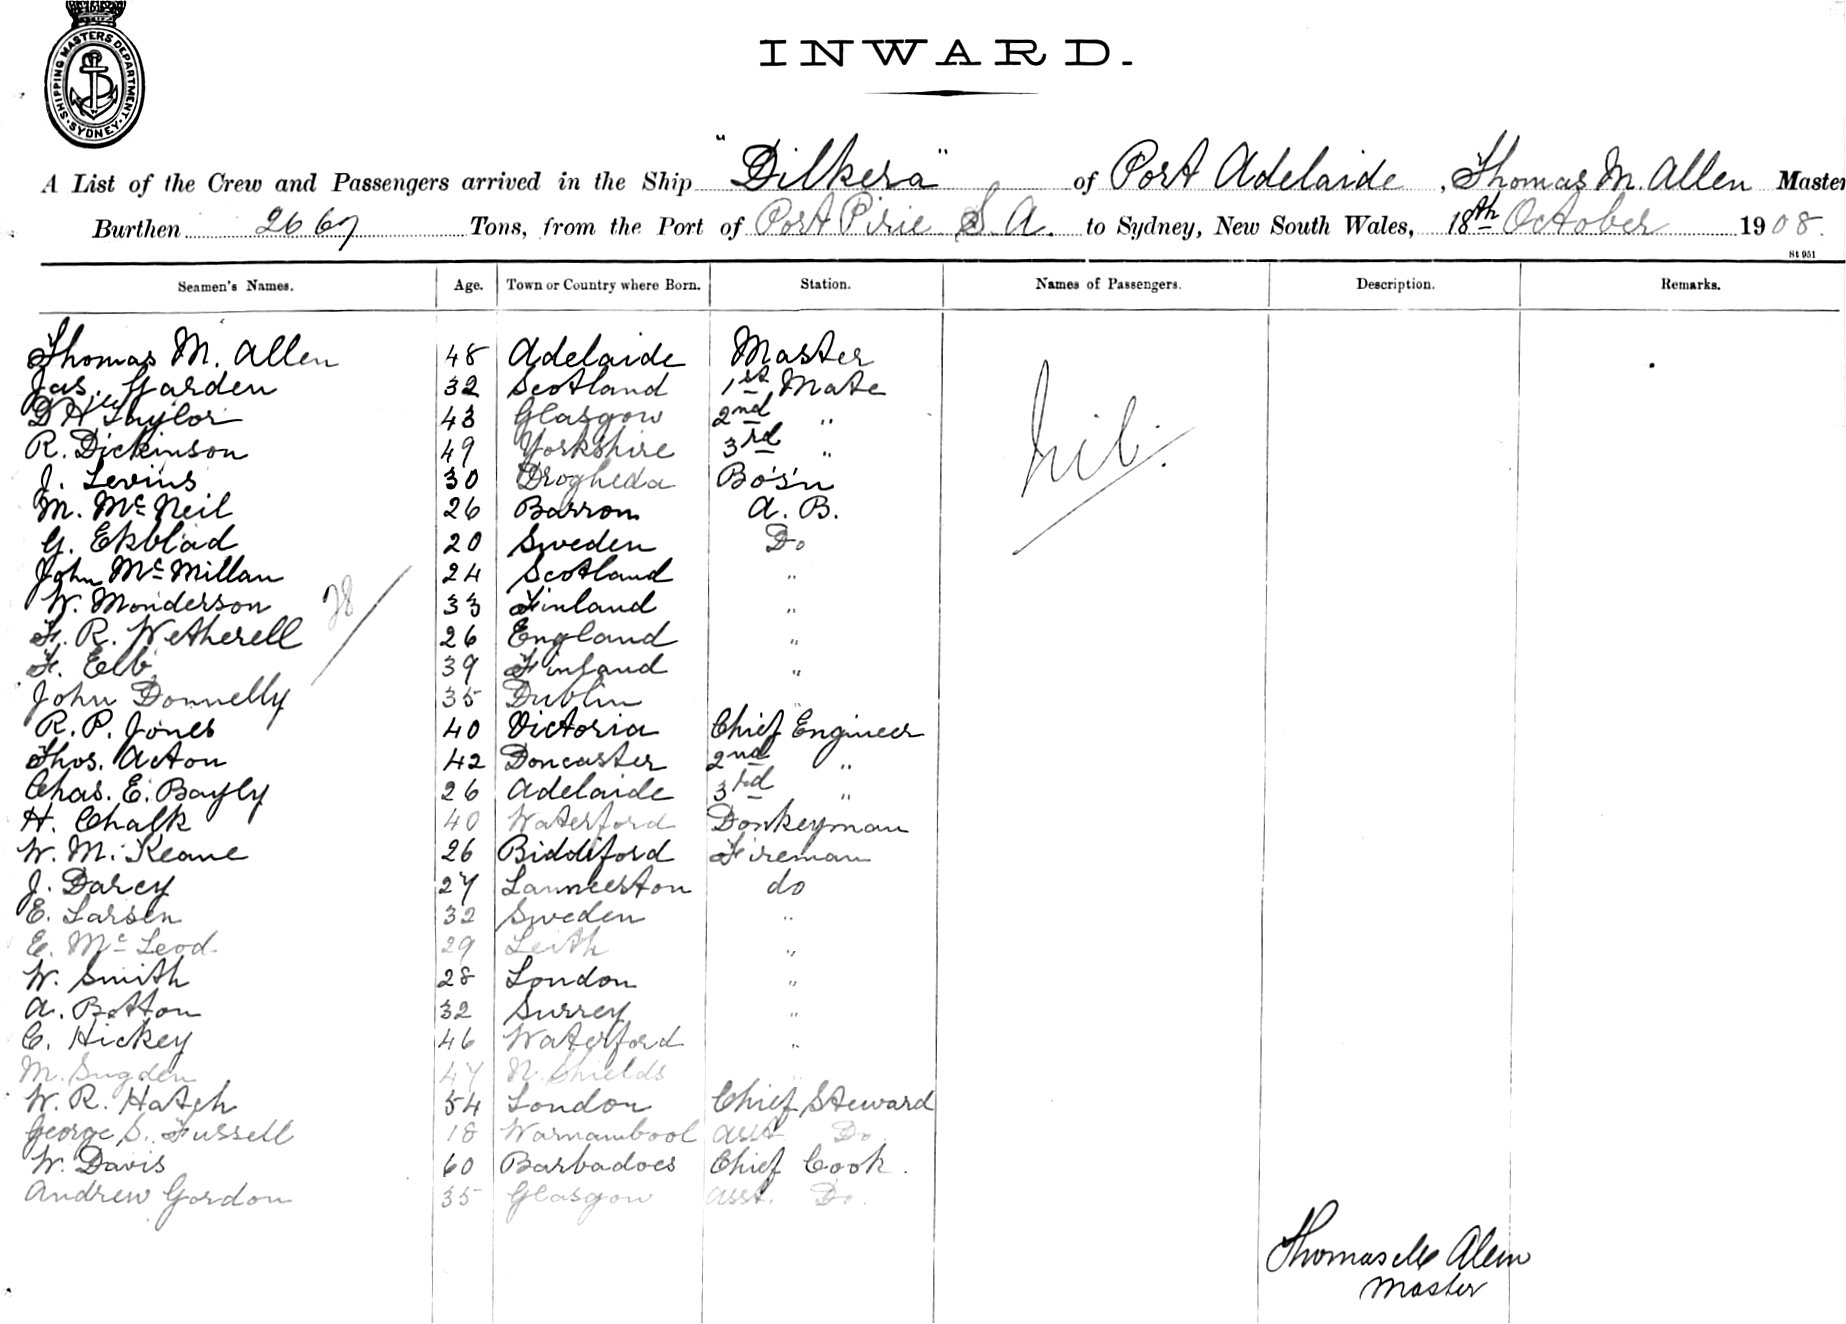 SHIPPING MASTERS DEPARTMENT · SYDNEY ·
INWARD.
A List of the Crew and Passengers arrived in the Ship "Dilkera" of Port Adelaide, Thomas M. Allen Master
Burthen 2667 Tons, from the Port of Port Pirie S A. to Sydney, New South Wales, 18th October 1908.
St 951
Seamen's Names. Age. Town or Country where Born. Station. Names of Passengers. Description. Remarks.
Thomas M. Allen 48 Adelaide Master
Jas. Garden 32 Scotland 1st Mate
D H Taylor 43 Glasgow 2nd "
R. Dickinson 49 Yorkshire 3rd "
J. Levins 30 Drogheda Bo's'n
nil.
M. McNeil 26 Barrom A. B.
G. Ekblad 20 Sweden Do
John McMillan 24 Scotland "
W. Monderson 33 Finland "
28
F. R. Wetherell 26 England "
F. Elb 39 Finland "
John Donnelly 35 Dublin "
R. P. Jones 40 Victoria Chief Engineer
Thos. Acton 42 Doncaster 2nd "
Chas. E. Bayly 26 Adelaide 3rd "
H. Chalk 40 Waterford Donkeyman
W. M. Keane 26 Biddiford Fireman
J. Darcy 27 Launceston do
E. Larsen 32 Sweden "
E. McLeod 29 Leith "
W. Smith 28 London "
A. Botton 32 Surrey "
C. Hickey 46 Waterford "
M. Sugden 47 N. Shields
W. R. Hatch 54 London Chief Steward
George S. Fussell 18 Warnambool asst Do
W. Davis 60 Barbadoes Chief Cook.
Andrew Gordon 35 Glasgow asst. Do.
Thomas M Allen
Master